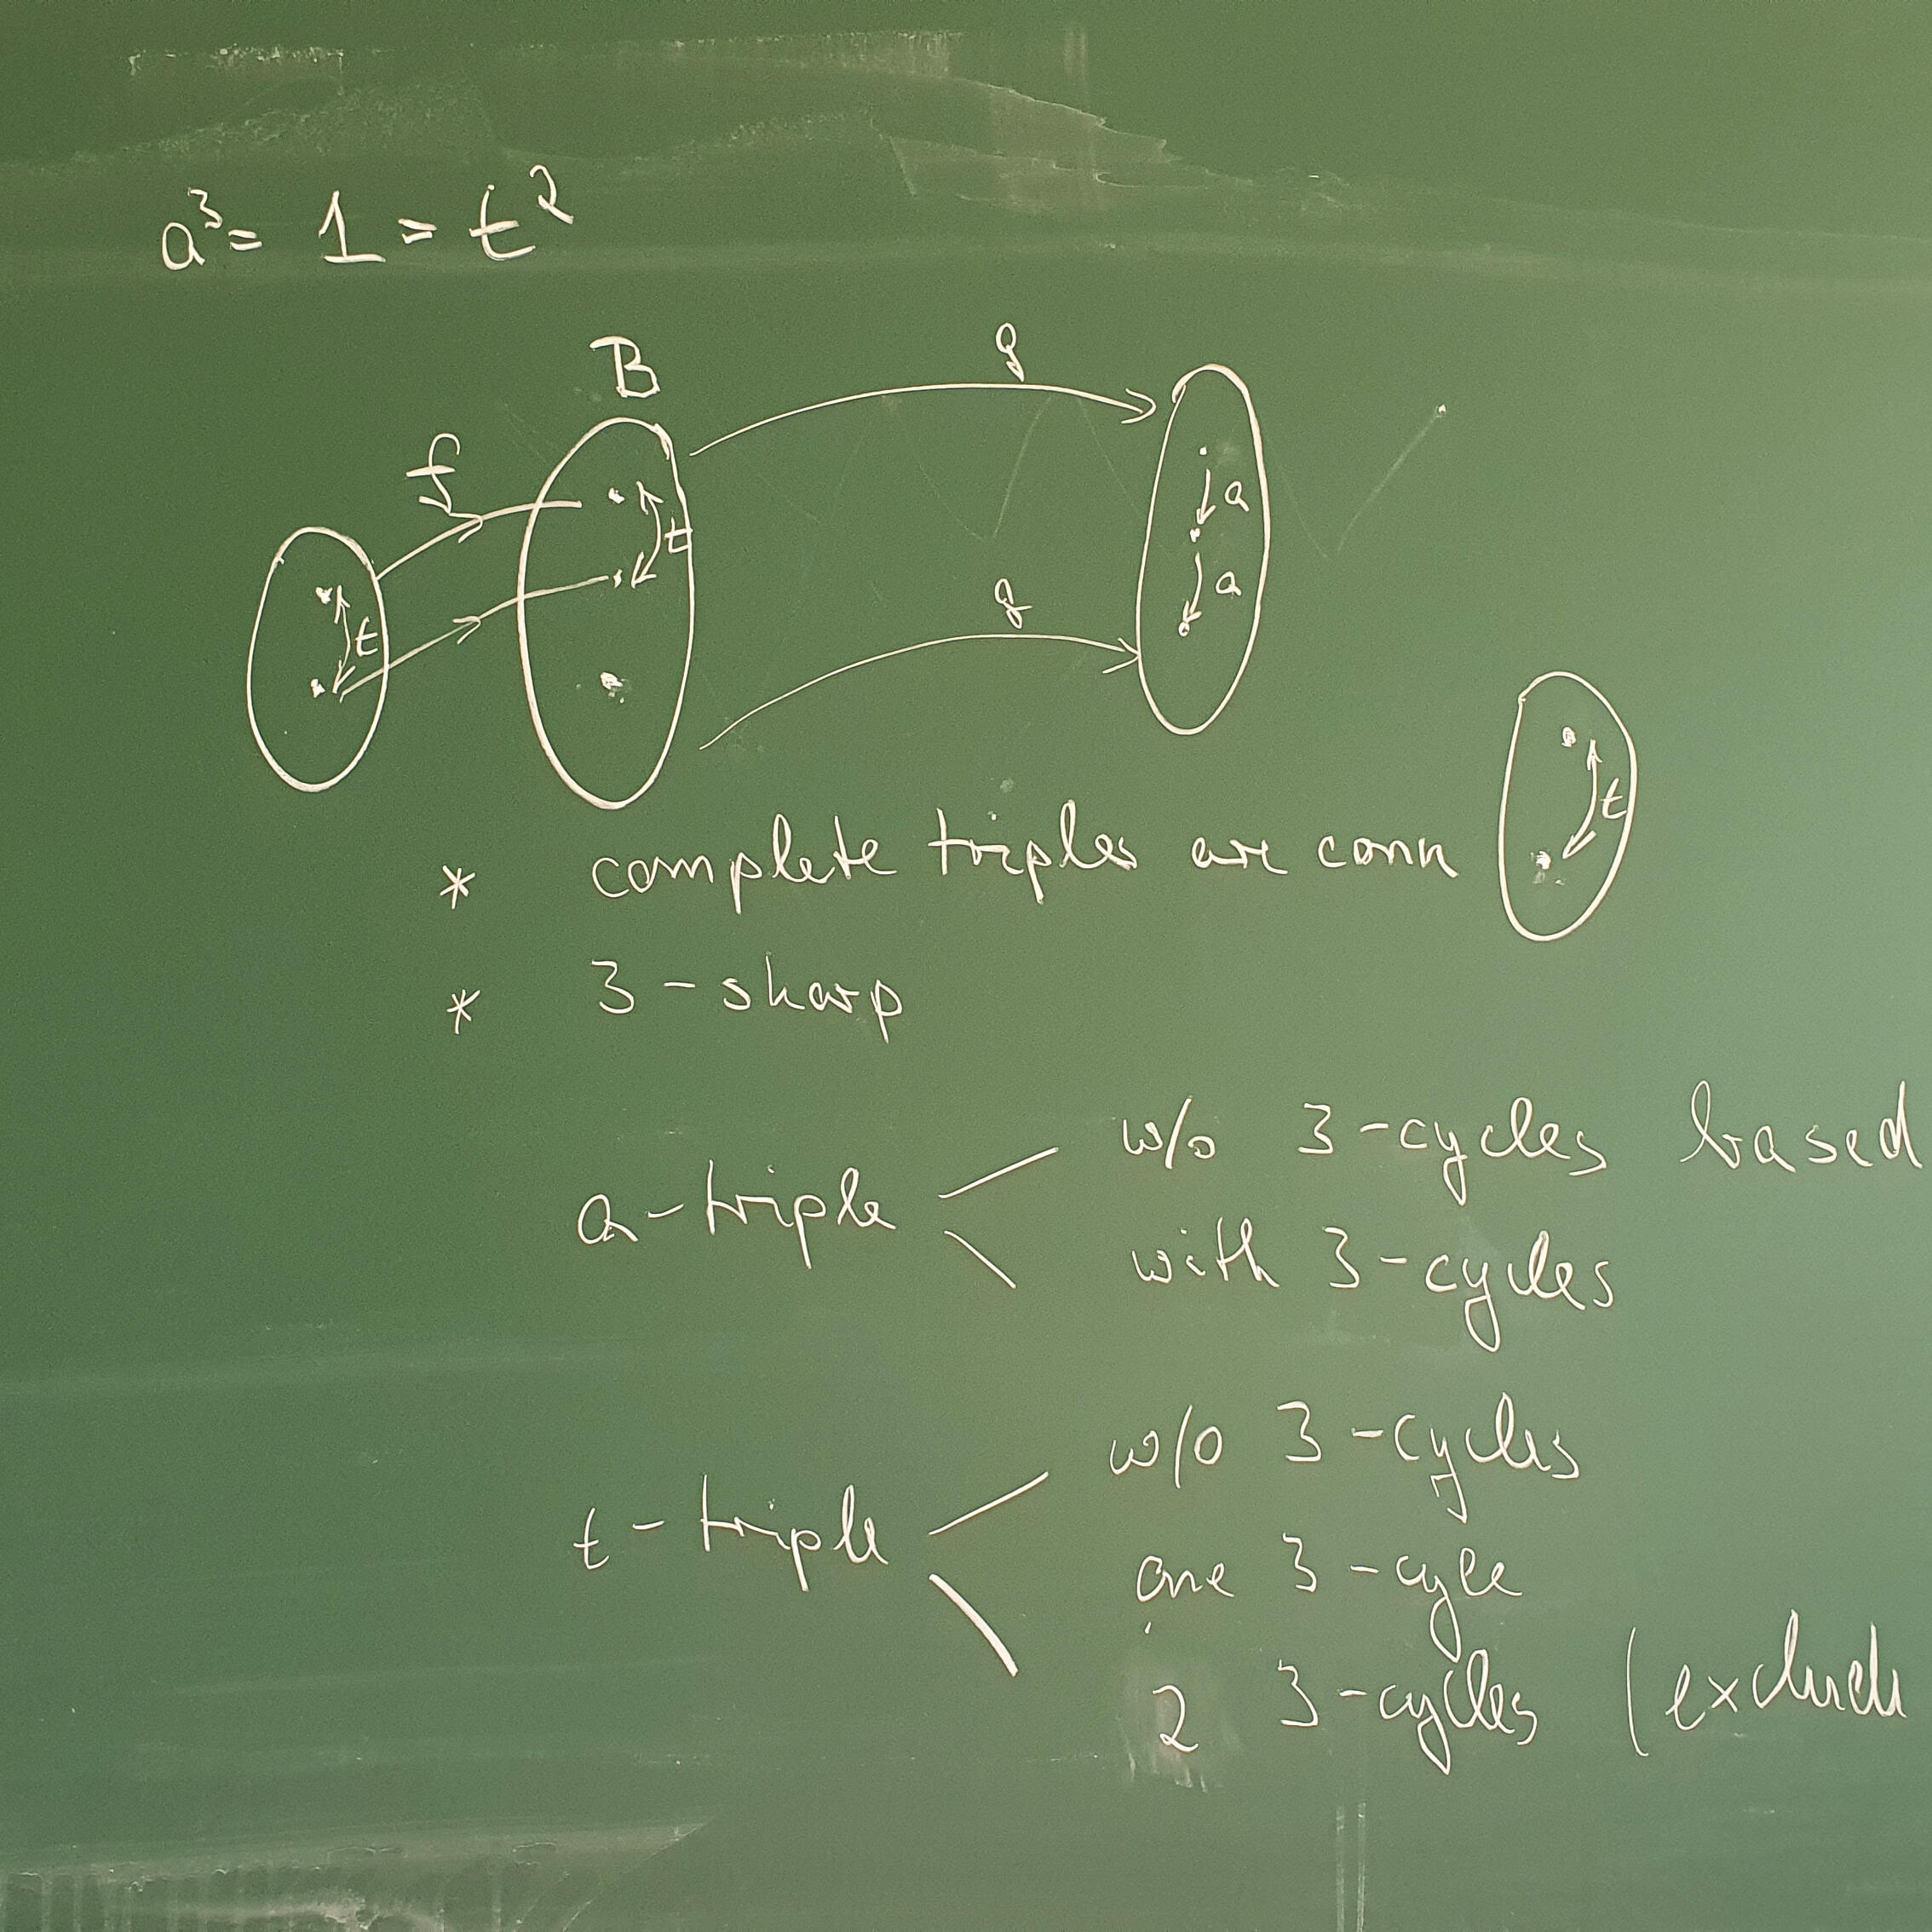 a³ = 1 = t²
B
f
g
t
t
a
a
g
t
* complete triples are conn
* 3-sharp
a-triple
w/o 3-cycles based
with 3-cycles
t-triple
w/o 3-cycles
one 3-cycle
2 3-cycles (exclude